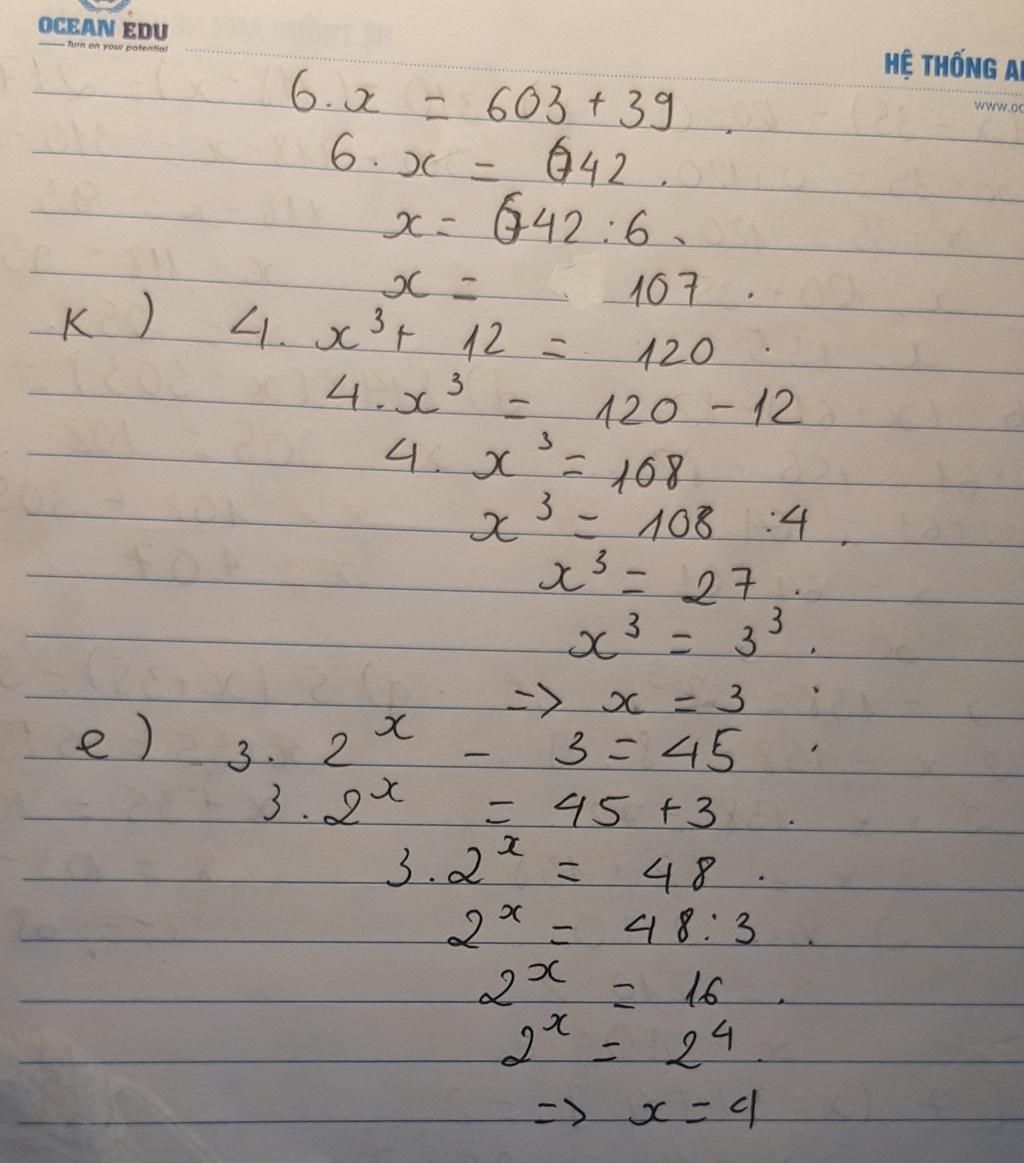 OCEAN EDU
Turn on your potential
HỆ THỐNG
www.oc
6.x = 603 + 39.
6.x = 642.
x = 642 : 6.
x = 107.
K) 4.x³ + 12 = 120.
4.x³ = 120 - 12
4.x³ = 108
x³ = 108 : 4.
x³ = 27.
x³ = 3³.
=> x = 3.
e) 3.2ˣ - 3 = 45.
3.2ˣ = 45 + 3.
3.2ˣ = 48.
2ˣ = 48 : 3.
2ˣ = 16.
2ˣ = 2⁴.
=> x = 4